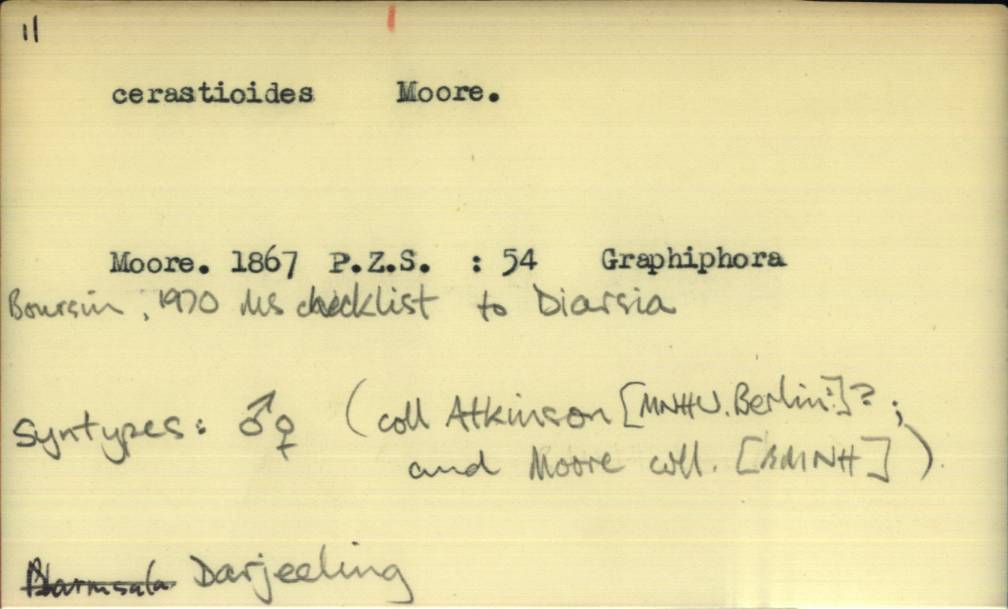 11
cerastioides Moore.
Moore. 1867 P.Z.S. : 54 Graphiphora
Boursin, 1970 MS checklist to Diarsia
Syntypes: ♂♀ (coll Atkinson [MNHU. Berlin?]?;
and Moore coll. [BMNH]).
Darjeeling